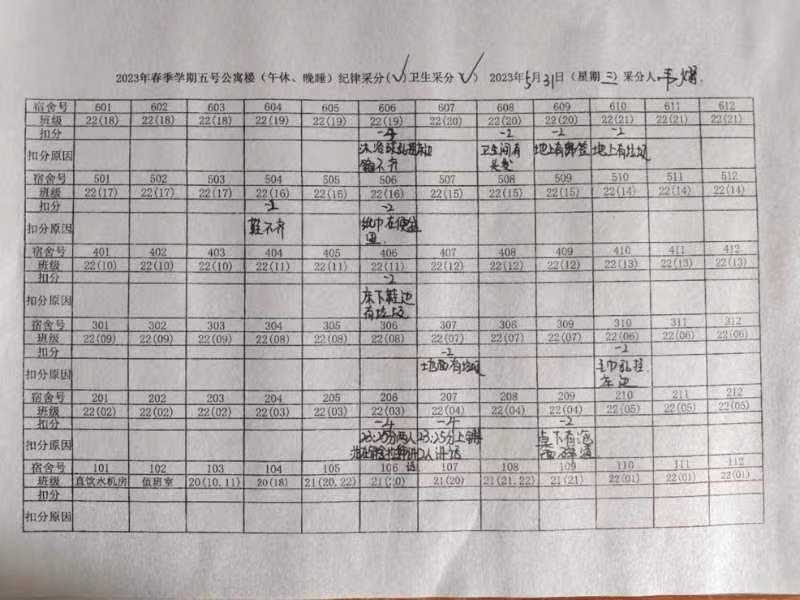 2023年春季学期五号公寓楼（午休、晚睡）纪律采分（√）卫生采分（√） 2023年5月31日（星期三）采分人
宿舍号 601 602 603 604 605 606 607 608 609 610 611 612
班级 22(18) 22(18) 22(18) 22(19) 22(19) 22(19) 22(20) 22(20) 22(20) 22(21) 22(21) 22(21)
扣分 -4 -2 -2 -2
扣分原因 鞋不齐 卫生间有头发 地上有 地上有垃圾
宿舍号 501 502 503 504 505 506 507 508 509 510 511 512
班级 22(17) 22(17) 22(17) 22(16) 22(16) 22(16) 22(15) 22(15) 22(15) 22(14) 22(14) 22(14)
扣分 -2 -2
扣分原因 鞋不齐 纸巾在便盆里.
宿舍号 401 402 403 404 405 406 407 408 409 410 411 412
班级 22(10) 22(10) 22(10) 22(11) 22(11) 22(11) 22(12) 22(12) 22(12) 22(13) 22(13) 22(13)
扣分 -2
扣分原因 床下鞋边有垃圾
宿舍号 301 302 303 304 305 306 307 308 309 310 311 312
班级 22(09) 22(09) 22(09) 22(08) 22(08) 22(08) 22(07) 22(07) 22(07) 22(06) 22(06) 22(06)
扣分 -2 -2
扣分原因 地面有垃圾 毛巾乱挂
宿舍号 201 202 203 204 205 206 207 208 209 210 211 212
班级 22(02) 22(02) 22(02) 22(03) 22(03) 22(03) 22(04) 22(04) 22(04) 22(05) 22(05) 22(05)
扣分 -4 -4 -2
扣分原因 23:25分两人 23:25分上铺 人讲话 桌下有泡面
宿舍号 101 102 103 104 105 106 107 108 109 110 111 112
班级 直饮水机房 值班室 20(10、11) 20(18) 21(20、22) 21(20) 21(20) 21(21、22) 21(21) 22(01) 22(01) 22(01)
扣分
扣分原因